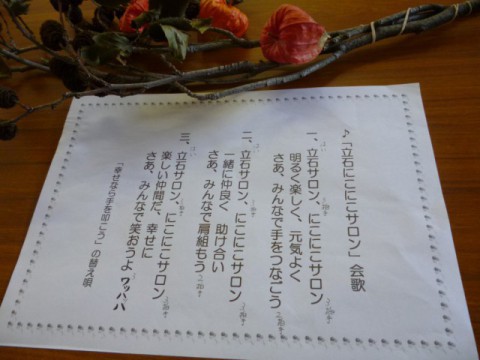 ♪「立石にこにこサロン」会歌
一、立石サロン、にこにこサロン
明るく楽しく、元気よく
さあ、みんなで手をつなごう
二、立石サロン、にこにこサロン
一緒に仲良く 助け合い
さあ、みんなで肩組もう
三、立石サロン、にこにこサロン
楽しい仲間だ、幸せに
さあ、みんなで笑おうよ ワッハハ
「幸せなら手を叩こう」の替え唄